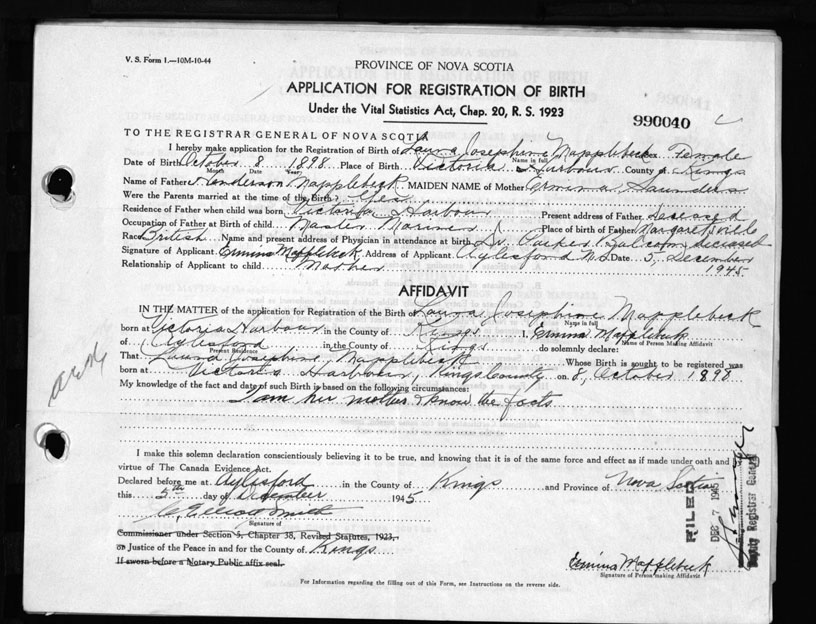 V. S. Form 1.—10M-10-44
PROVINCE OF NOVA SCOTIA
APPLICATION FOR REGISTRATION OF BIRTH
Under the Vital Statistics Act, Chap. 20, R. S. 1923
990040
TO THE REGISTRAR GENERAL OF NOVA SCOTIA
I hereby make application for the Registration of Birth of Laura Josephine Mapplebeck Sex Female
Name in full
Date of Birth October 8 1898 Place of Birth Victoria Harbour County of Kings
Month Day Year
Name of Father Henderson Mapplebeck MAIDEN NAME of Mother Ermina Saunders
Were the Parents married at the time of the Birth? Yes
Residence of Father when child was born Victoria Harbour Present address of Father Deceased
Occupation of Father at Birth of Child Master Mariner Place of birth of Father Margaretsville
Race British Name and present address of Physician in attendance at birth Dr. deceased
Signature of Applicant Ermina Mapplebeck Address of Applicant Aylesford N.S. Date 5, December
Relationship of Applicant to child Mother 1945
AFFIDAVIT
IN THE MATTER of the application for Registration of the Birth of Laura Josephine Mapplebeck
Name in full
born at Victoria Harbour in the County of Kings I, Ermina Mapplebeck
Name of Person Making Affidavit
of Aylesford in the County of Kings do solemnly declare:
Present Residence
That Laura Josephine Mapplebeck Whose Birth is sought to be registered was
born at Victoria Harbour, Kings County on 8, October 1898
My knowledge of the fact and date of such Birth is based on the following circumstances:
I am her mother & know the facts
I make this solemn declaration conscientiously believing it to be true, and knowing that it is of the same force and effect as if made under oath and by
virtue of The Canada Evidence Act.
Declared before me at Aylesford in the County of Kings and Province of Nova Scotia
this 5th day of December 1945
C. Elliott Smith
Signature of
Commissioner under Section 5, Chapter 38, Revised Statutes, 1923,
or Justice of the Peace in and for the County of Kings
If sworn before a Notary Public affix seal.
Ermina Mapplebeck
Signature of Person making Affidavit
For Information regarding the filling out of this Form, see Instructions on the reverse side.
FILED
DEC 7 1945
Deputy Registrar General